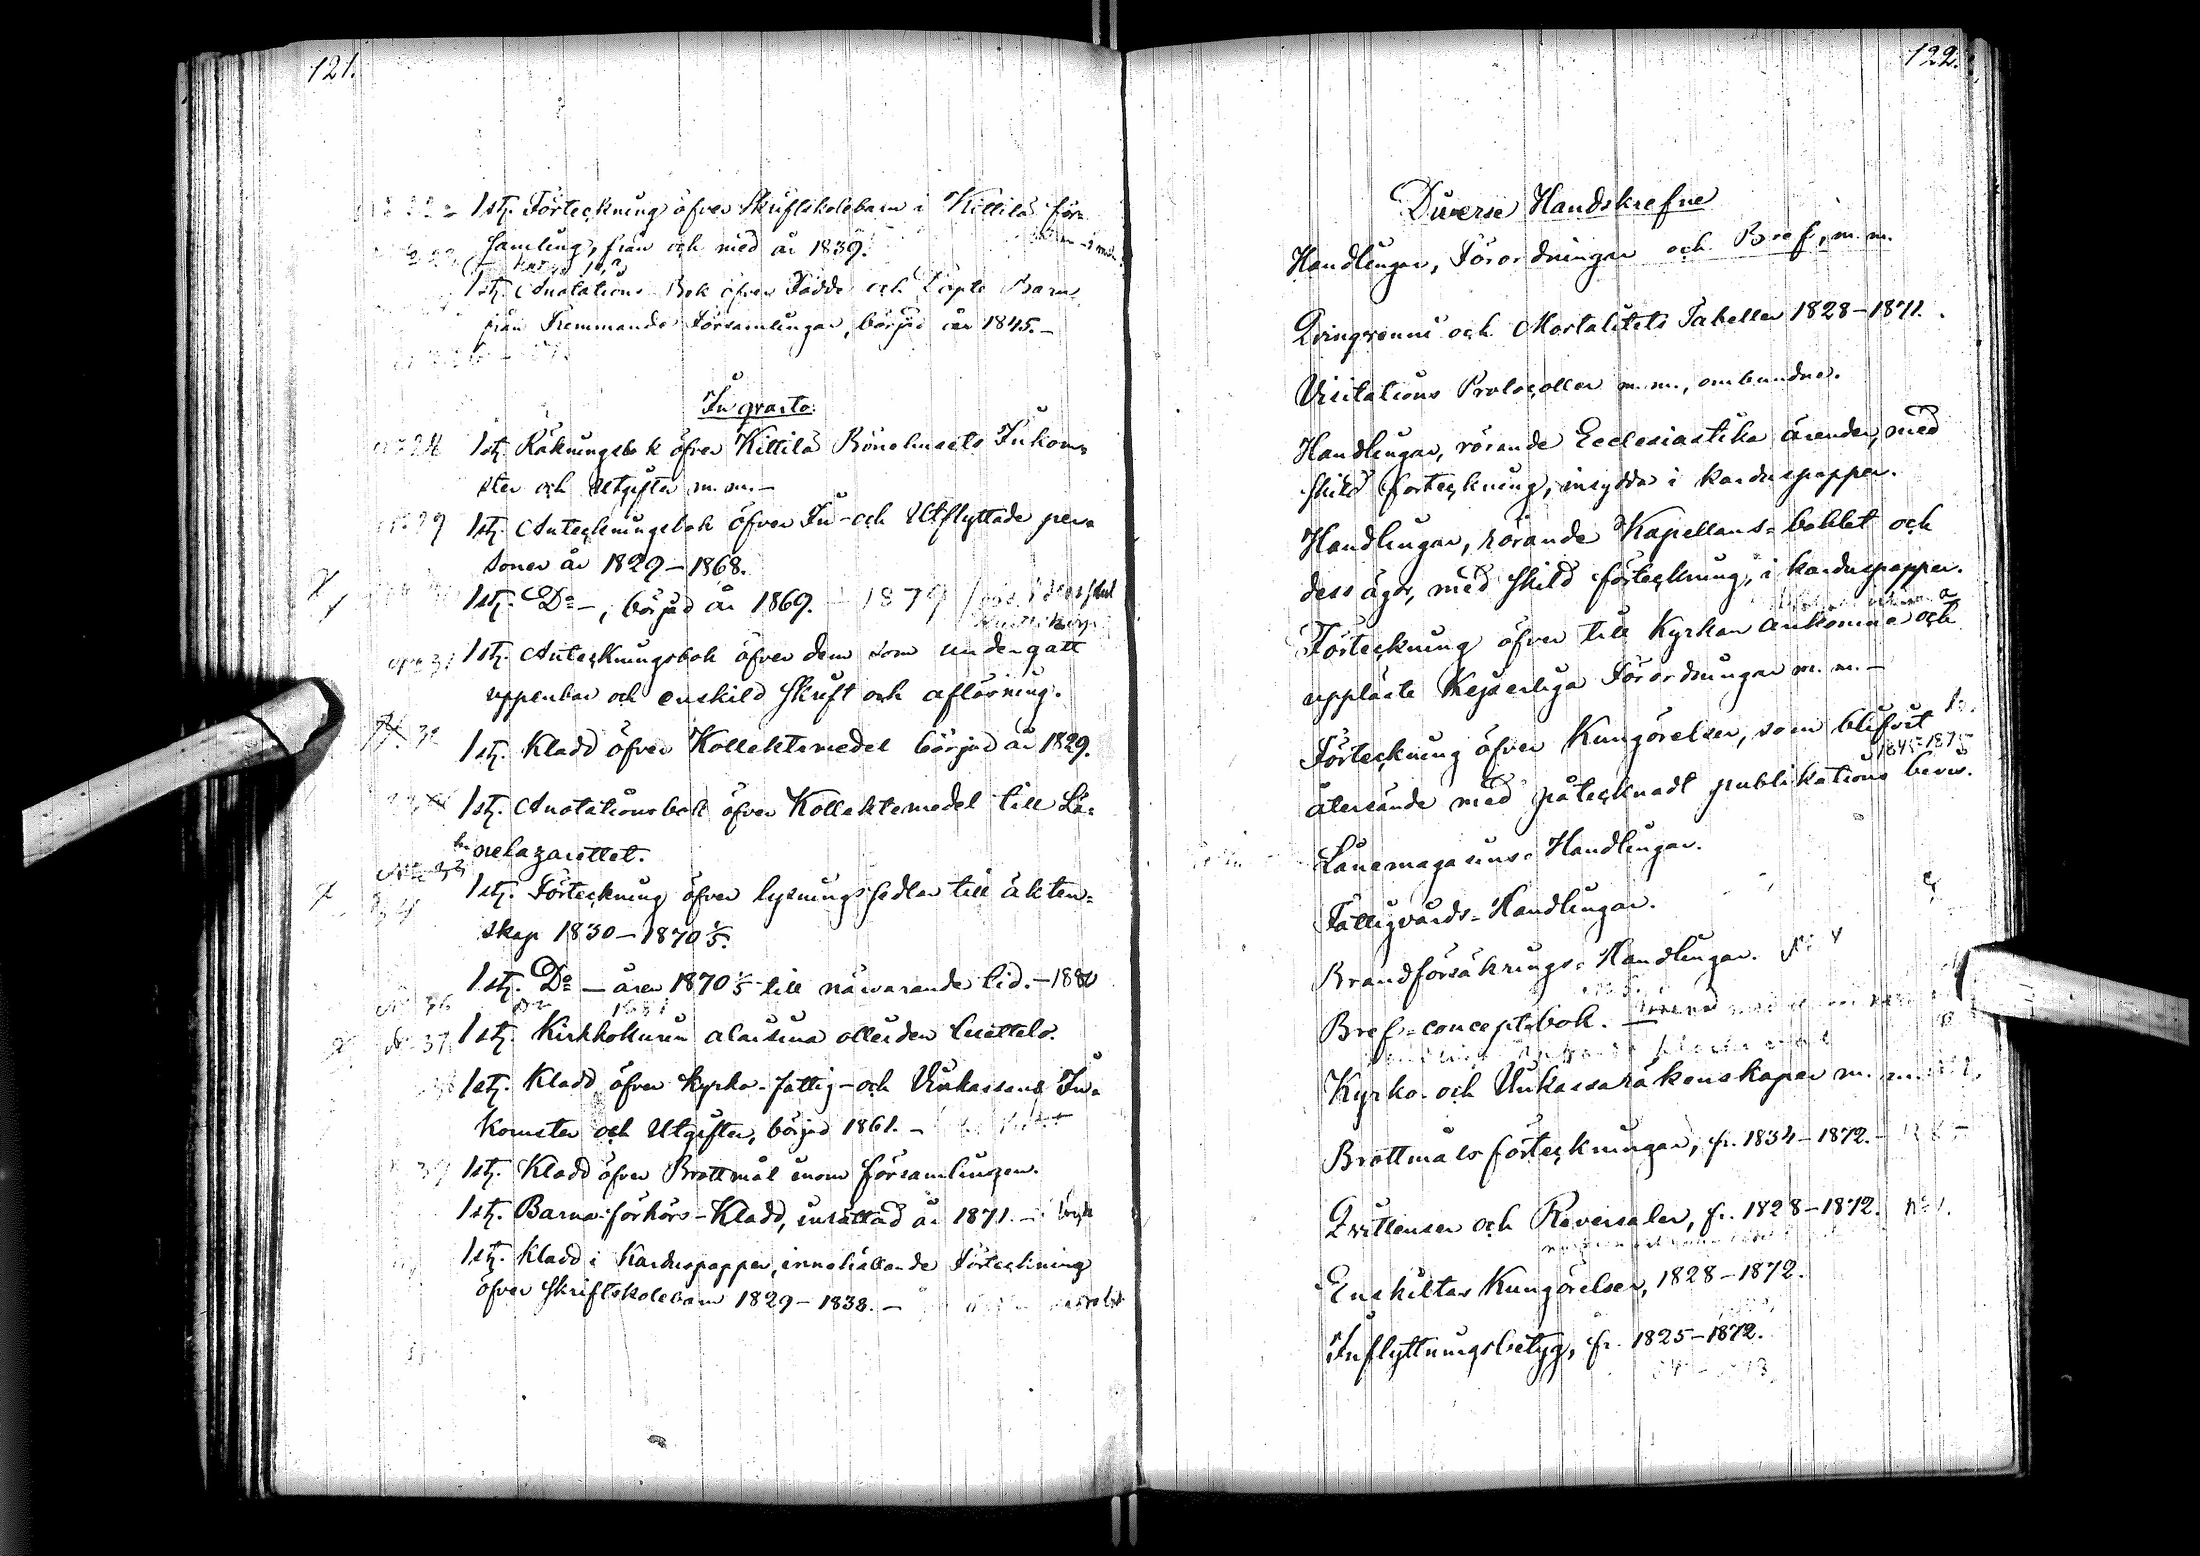 121.
1 st. Förteckning öfver Skriftskolebarn i Kittilä för-
samling, från och med år 1839.
1 st. Anotations Bok öfver Födde och Döpte Barn
från Fremmande Församlingar, börjad år 1845.-
In qvarto:
1 st. Räkningsbok öfver Kittilä Bönehusets Inkom-
ster och Utgifter m.m.-
29 1 st. Anteckningsbok öfver In- och Utflyttade per-
soner år 1829-1868.
1 st. Do-, börjad år 1869. - 1879
No 31 1 st. Anteckningsbok öfver dem som undergått
uppenbar och enskild skrift och aflösning.
32 1 st. Kladd öfver Kollektmedel börjad år 1829.
1 st. Anotationsbok öfver Kollektemedel till Lä-
nelazarettet.
1 st. Förteckning öfver lysningssedlar till äkten-
skap 1830-1870 1/5.
1 st. Do - åren 1870 1/5 till närvarande tid.-1880
No 36 Do 1881
No 37 1 st. Kirkkokurin alaisina olleiden luettelo.
1 st. Kladd öfver Kyrko- fattig- och Vinkassans In-
komster och Utgifter, börjad 1861.-
39 1 st. Kladd öfver Brottmål inom församlingen.
1 st. Barna-förhörs-Kladd, inrättad år 1871.-
1 st. Kladd i Karduspapper, innehållande Förteckning
öfver Skriftskolebarn 1829-1838.-
122.
Diverse Handskrefne
Handlingar, Förordningar och Bref, m.m.
Qvinqvenni och Mortalitets Tabeller 1828-1871.
Visitations Protocoller m.m., ombundne.
Handlingar, rörande Ecclesiastika ärenden, med
skild forteckning, insydda i karduspapper.
Handlingar, rörande Kapellans-bohlet och
dess ägor, med skild förteckning, i karduspapper.
Förteckning öfver till Kyrkan ankomna och
uppläste Kejserliga Förordningar m.m.-
Förteckning öfver Kungörelser, som blifvit
1845-1875
återsände med påtecknadt publikations bevis.
Lånemagasins-Handlingar.
Fattigvårds-Handlingar.
Brandförsäkrings-Handlingar.
Bref-conceptsbok.
Kyrko- och Vinkassaräkenskaper m.m.
Brottmåls förteckningar, fr. 1834-1872.-
Qvittenser och Reversaler, fr. 1828-1872. No 1.
Enskiltas Kungörelser, 1828-1872.
Inflyttningsbetyg, fr. 1825-1872.